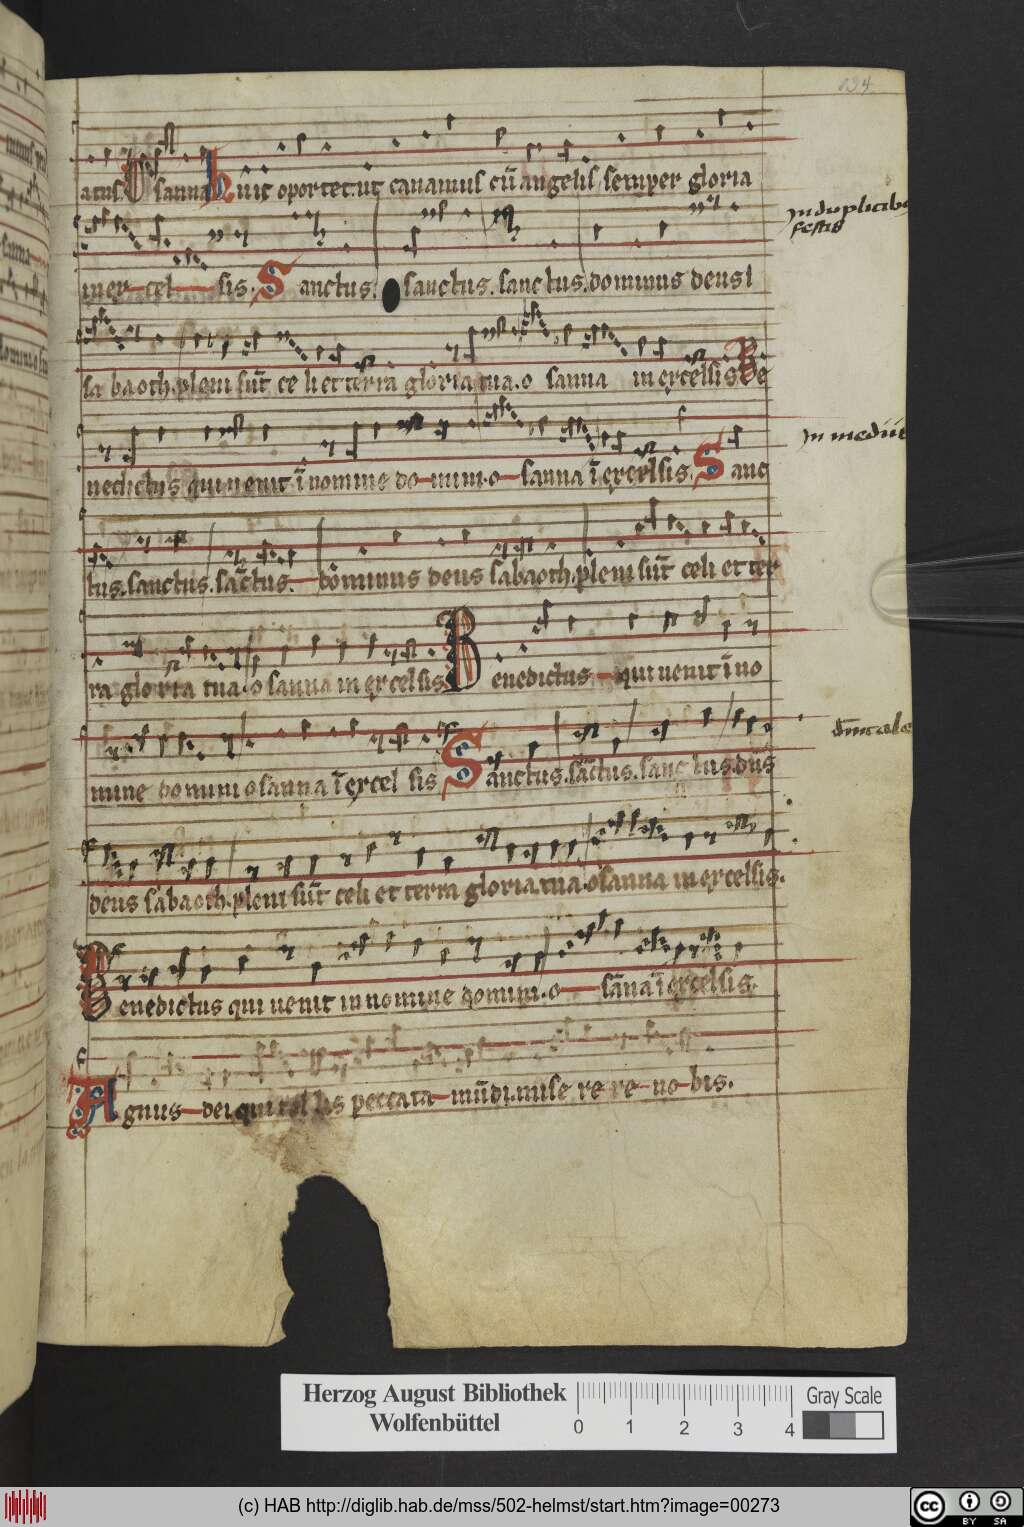 134
atus O sanna huic oportet ut canamus cū angelis semper gloria
in duplicib;
festis
in ex cel sis. Sanctus. sanctus. sanctus. dominus deus
sa baoth. pleni sūt celi et terra gloria tua. o sanna in excelsis Be
nedictus qui uenit ī nomine domini. o sanna ī excelsis. Sanc
in mediis
tus. sanctus. sāctus. dominus deus sabaoth. pleni sūt celi et ter
ra gloria tua. o sanna in excelsis Benedictus qui uenit ī no
mine domini osanna ī excel sis Sanctus. sāctus. sanctus. dn̄s
deus sabaoth. pleni sūt celi et terra gloria tua. osanna in excelsis.
Benedictus qui uenit in nomine domini. o sāna ī excelsis.
Agnus dei qui tollis peccata mūdi. mise re re no bis.
Herzog August Bibliothek
Wolfenbüttel
0 1 2 3 4
Gray Scale
(c) HAB http://diglib.hab.de/mss/502-helmst/start.htm?image=00273
CC BY SA